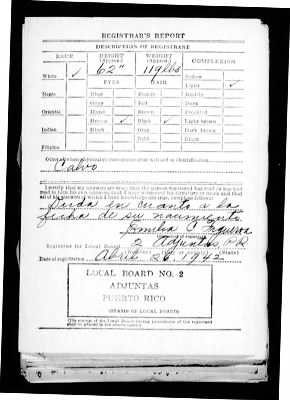 REGISTRAR'S REPORT
DESCRIPTION OF REGISTRANT
RACE HEIGHT (Approx.) WEIGHT (Approx.) COMPLEXION
62" 119 lbs
White ✓ Sallow
EYES HAIR Light ✓
Negro Blue Blonde Ruddy
Gray Red Dark
Oriental Hazel Brown Freckled
Brown ✓ Black ✓ Light brown
Indian Black Gray Dark brown
Bald Black
Filipino
Other obvious physical characteristics that will aid in identification
Calvo
I certify that my answers are true; that the person registered has read or has had read to him his own answers; that I have witnessed his signature or mark and that all of his answers of which I have knowledge are true, except as follows:
duda en cuanto a la
fecha de su nacimiento
Emilia Figueroa
Registrar for Local Board 2 Adjuntas, P.R.
(Number) (City or county) (State)
Date of registration Abril 26, 1942
LOCAL BOARD NO. 2
ADJUNTAS
PUERTO RICO
(STAMP OF LOCAL BOARD)
(The stamp of the Local Board having jurisdiction of the registrant shall be placed in the above space.)